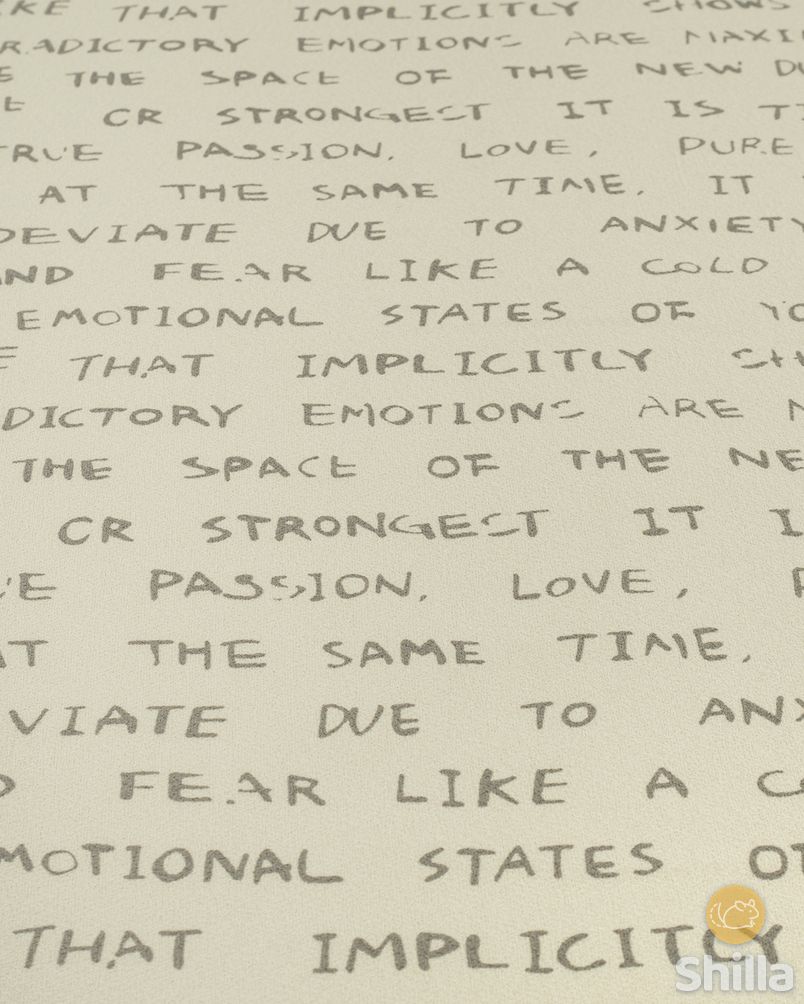 KE THAT IMPLICITLY SHOWS
RADICTORY EMOTIONS ARE MAXI
S THE SPACE OF THE NEW DU
E OR STRONGEST IT IS TI
TRUE PASSION. LOVE, PURE
AT THE SAME TIME. IT
DEVIATE DUE TO ANXIETY
AND FEAR LIKE A COLD
EMOTIONAL STATES OF YO
E THAT IMPLICITLY SH
DICTORY EMOTIONS ARE M
THE SPACE OF THE NE
OR STRONGEST IT I
UE PASSION. LOVE, P
AT THE SAME TIME.
VIATE DUE TO ANX
D FEAR LIKE A CO
MOTIONAL STATES OF
THAT IMPLICITLY
Shilla